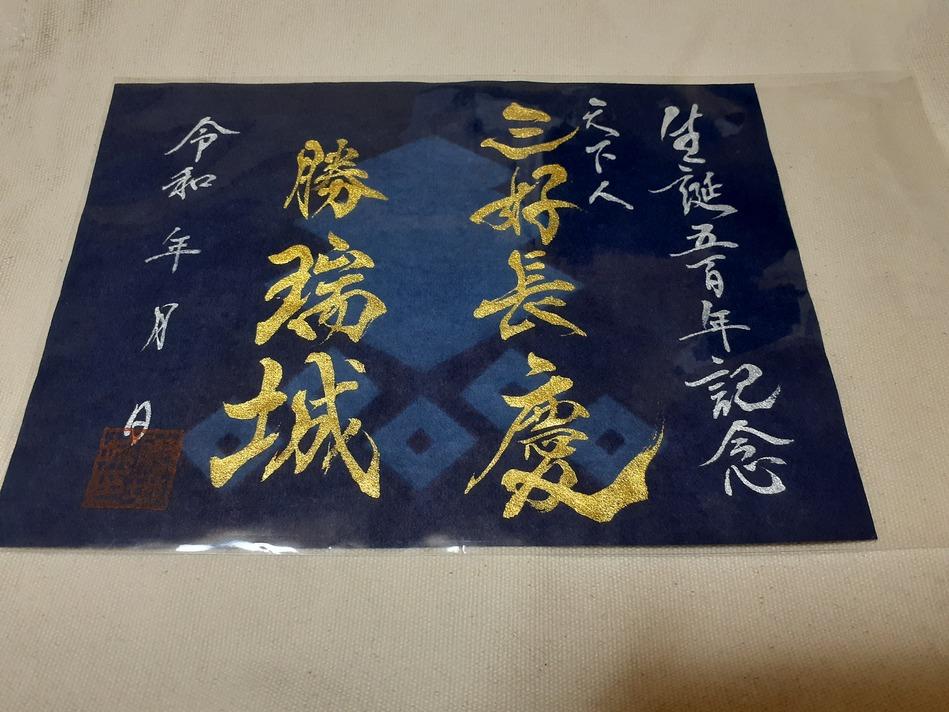 生誕五百年記念
天下人
三好長慶
勝瑞城
令和 年 月 日